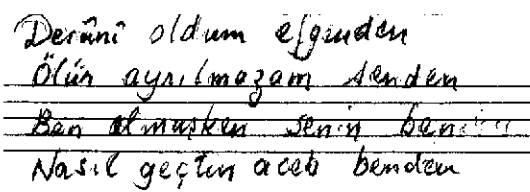 Derûnî oldum elginden
Ölür ayrılmazam senden
Ben olmuşken senin
Nasıl geçtin aceb benden